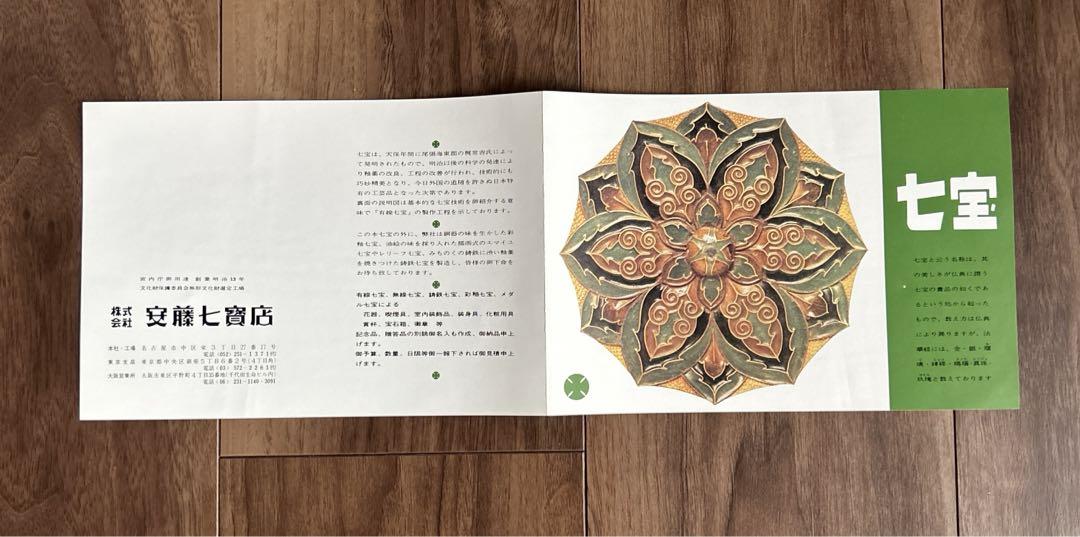 七宝は、天保年間に尾張海東郡の梶常吉氏によっ
て発明されたもので、明治以後の科学の発達によ
り釉薬の改良、工程の改善が行われ、技術的にも
巧妙精美となり、今日外国の追随を許さぬ日本特
有の工芸品となった次第であります。
裏面の説明図は基本的な七宝技術を御紹介する意
味で「有線七宝」の製作工程を示しております。
この本七宝の外に、弊社は銅器の味を生かした彩
釉七宝、油絵の味を採り入れた描画式のエマイユ
七宝やレリーフ七宝、みちのくの鋳鉄に渋い釉薬
を焼きつけた鋳鉄七宝を製造し、皆様の御下命を
お待ち致しております。
有線七宝、無線七宝、鋳鉄七宝、彩釉七宝、メダ
ル七宝による
花器、喫煙具、室内装飾品、装身具、化粧用具
賞杯、宝石箱、徽章 等
記念品、贈答品の別誂御名入も作成、御納品申上
げます。
御予算、数量、日限等御一報下されば御見積申上
げます。
宮内庁御用達 創業明治13年
文化財保護委員会無形文化財選定工場
株式会社 安藤七寶店
本社・工場 名古屋市中区栄3丁目27番17号
電話 (052) 251-1371代
東京支店 東京都中央区銀座5丁目6番2号(4丁目角)
電話 (03) 572-2261代
大阪営業所 大阪市東区平野町4丁目35番地(千代田生命ビル内)
電話 (06) 231-1140・3091
七宝
七宝と云う名称は、其
の美しさが仏典に謂う
七宝の貴品の如くであ
るという処から起った
もので、数え方は仏典
により異りますが、法
華経には、金・銀・瑠
璃・硨磲・瑪瑙・真珠・
玫瑰と数えております